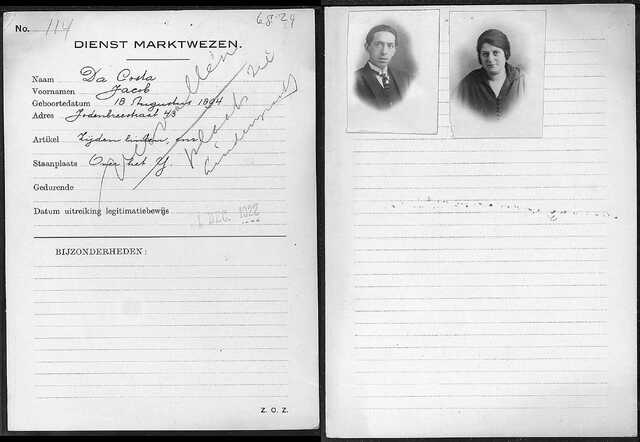 No. 114
6-8-24
DIENST MARKTWEZEN.
Naam Da Costa
Voornamen Jacob
Geboortedatum 18 Augustus 1894
Adres Jodenbreestraat 43
Artikel Zijden linten, enz
Staanplaats Over het Y.
Vervallen plaats zie
Gedurende
Datum uitreiking legitimatiebewijs 1 DEC. 1922
BIJZONDERHEDEN:
Z. O. Z.